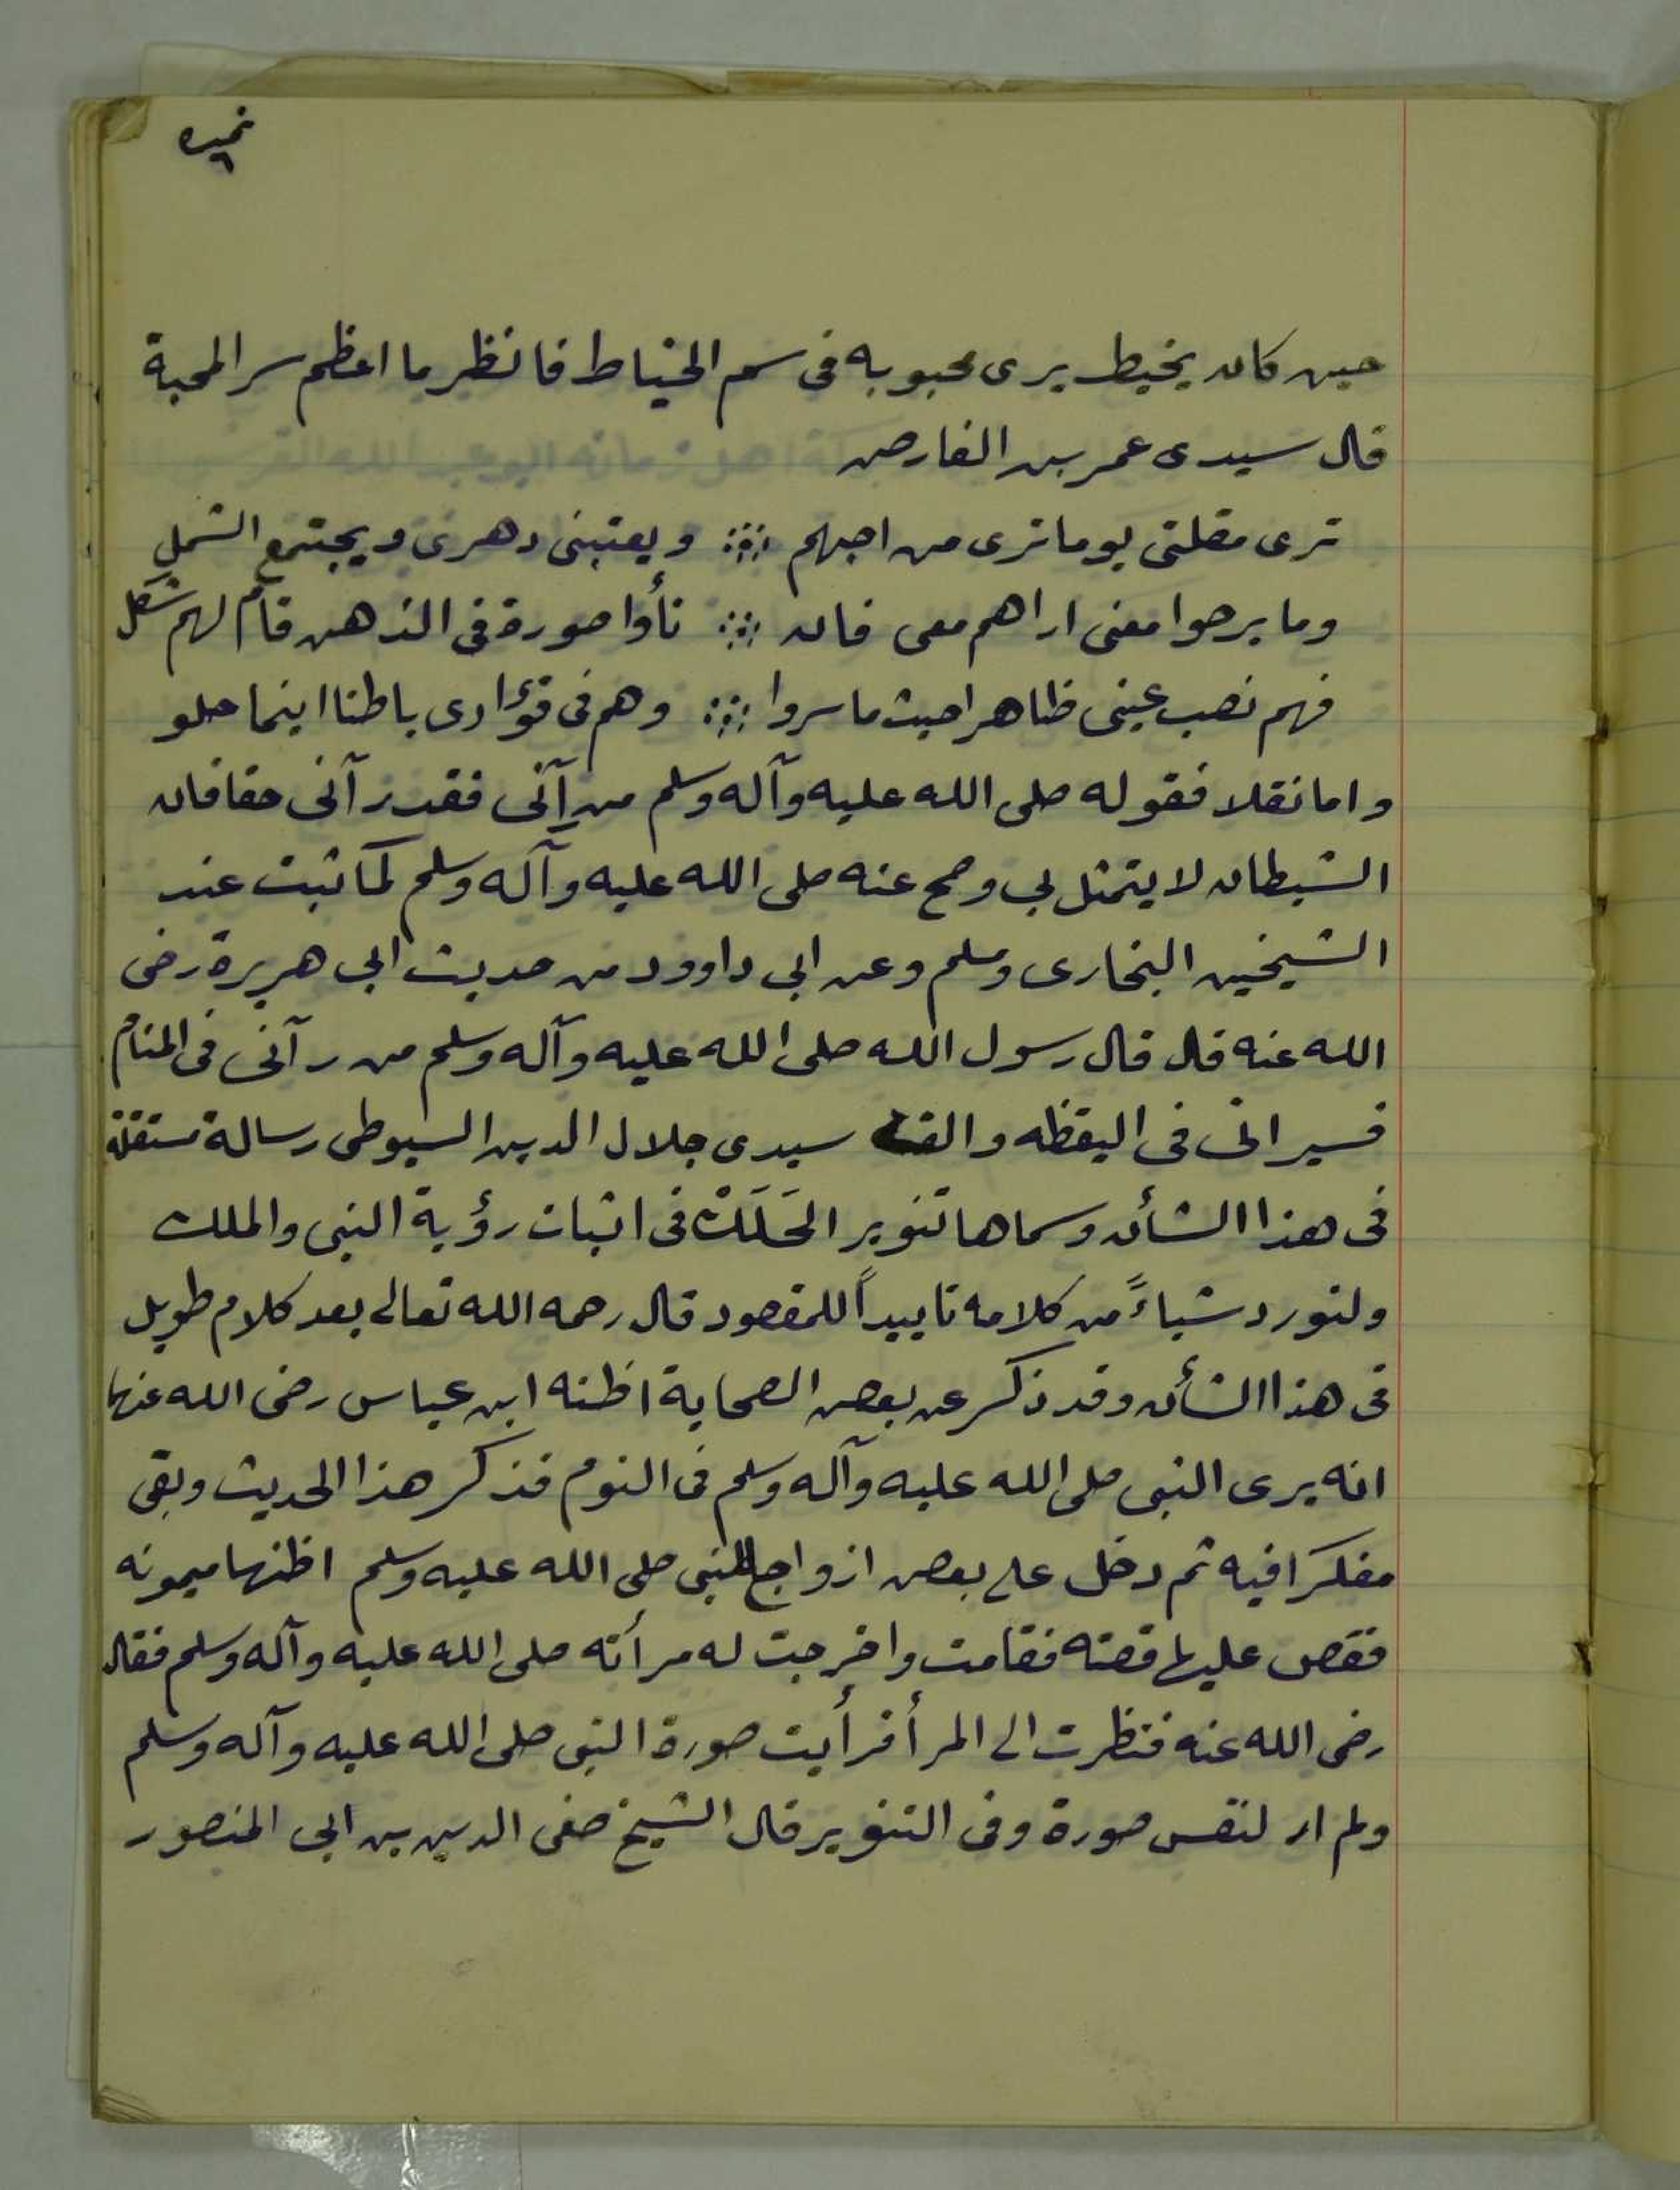 نمره
٦
حين كان يخيط يرى محبوبه فى سم الخياط فانظر ما اعظم سر المحبة
قال سيدى عمر بن الفارض
ترى مقلتى يوما ترى من احبهم ؞ ويعتبنى دهرى ويجتمع الشمل
وما برحوا معنى اراهم معى فان ؞ نأوا صورة فى الذهن قام لهم شكل
فهم نصب عينى ظاهرا حيث ما سروا ؞ وهم فى فؤادى باطنا اينما حلو
واما نقلا فقوله صلى الله عليه وآله وسلم من رآنى فقد رآنى حقا فان
الشيطان لا يتمثل بي وصح عنه صلى الله عليه وآله وسلم كما ثبت عند
الشيخين البخارى ومسلم وعن ابى داوود من حديث ابي هريرة رضى
الله عنه قال قال رسول الله صلى الله عليه وآله وسلم من رآنى فى المنام
فسيرانى فى اليقظه والف سيدى جلال الدين السيوطى رسالة مستقلة
فى هذا الشأن وسماها تنوير الحَلَكْ فى اثبات رؤية النبى والملك
ولنورد شياءً من كلامه تاييداً للمقصود قال رحمه الله تعالى بعد كلام طويل
فى هذا الشأن وقد ذكر عن بعض الصحابة اظنه ابن عباس رضى الله عنهما
انه يرى النبى صلى الله عليه وآله وسلم فى النوم فذكر هذا الحديث وبقى
مفكرا فيه ثم دخل على بعض ازواج النبى صلى الله عليه وسلم اظنها ميمونه
فقص عليها قصته فقامت واخرجت له مرأته صلى الله عليه وآله وسلم فقال
رضى الله عنه فنظرت الى المرأ فرأيت صورة النبى صلى الله عليه وآله وسلم
ولم ار لنفس صورة وفى التنوير قال الشيخ صفى الدين بن ابى المنصور